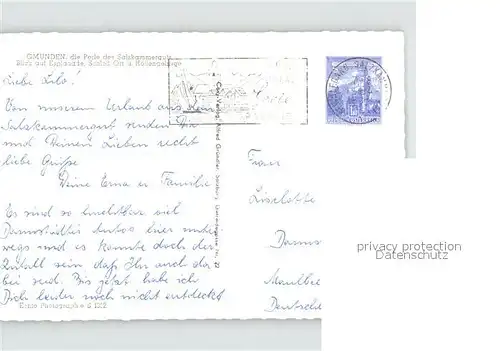 GMUNDEN, die Perle des Salzkammerguts
Blick auf Esplanade, Schloß Ort u. Höllengebirge
Liebe Lilo!
Von unserem Urlaub aus dem
Salzkammergut senden Dir
und Deinen Lieben recht
liebe Grüße
Deine Erna u Familie
Es sind so furchtbar viel
Darmstädter Autos hier unter
wegs und es könnte doch der
Zufall sein daß Ihr auch da
bei seid. Bis jetzt habe ich
Dich leider noch nicht entdeckt
Echte Photographie
Cosy-Verlag, Alfred Gründler, Salzburg,
Frau
Liselotte
Darms
Maulbee
Deutsche
privacy protection
Datenschutz